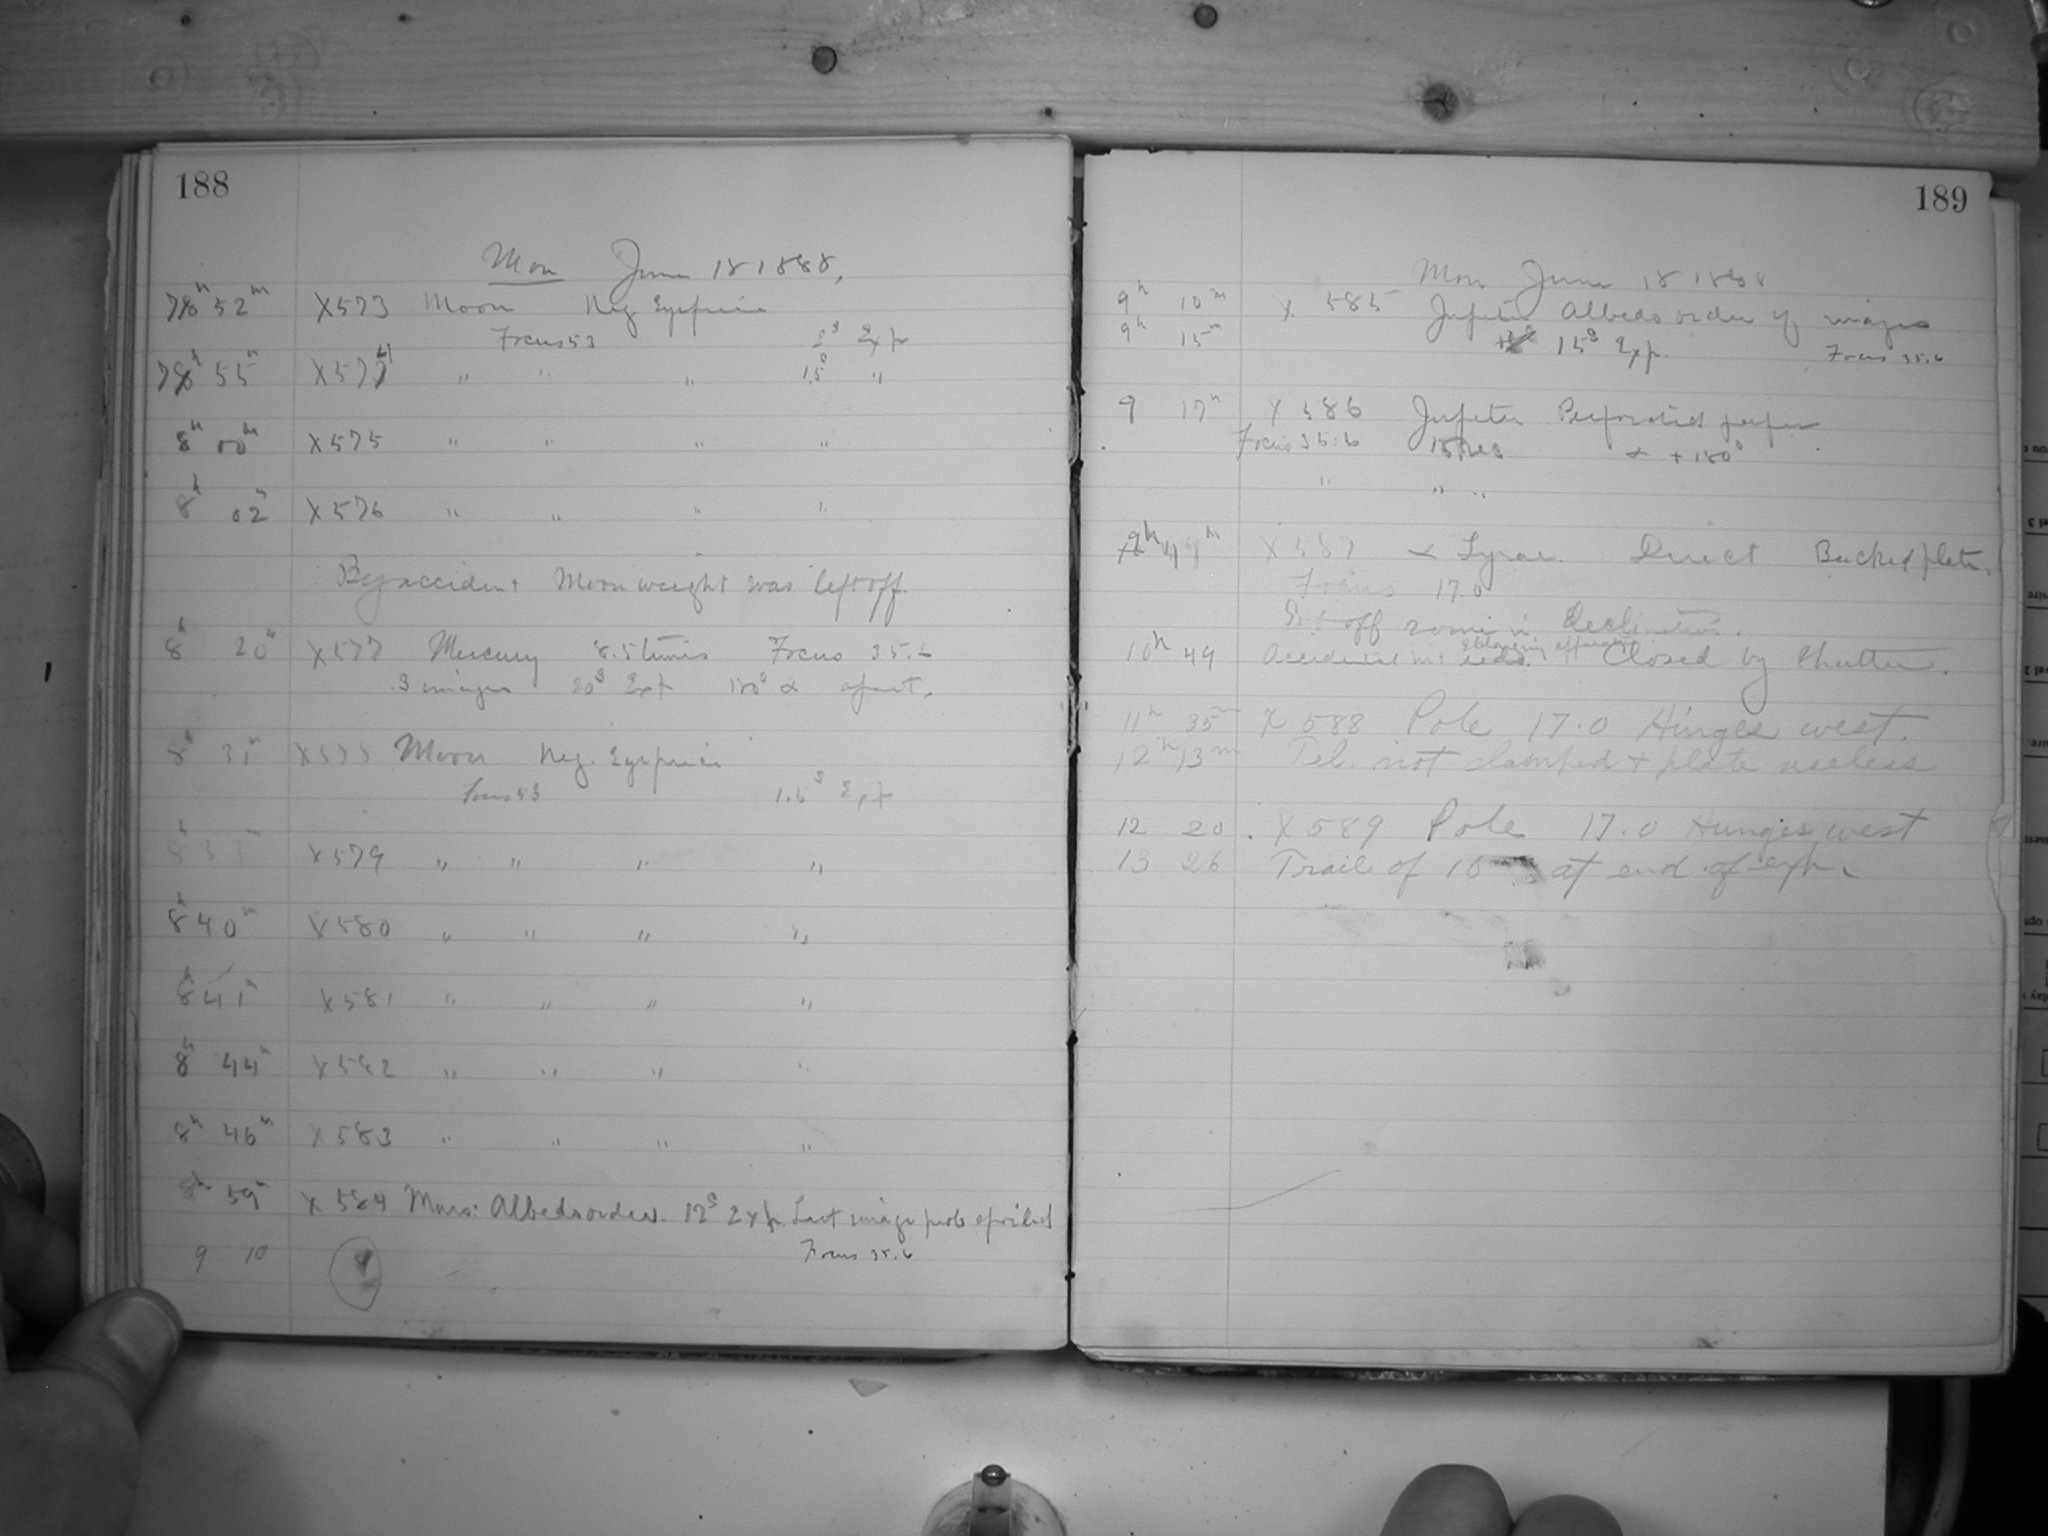 188
Mon June 18 1888,
7h 52m X573 Moon Neg Eyepiece
Focus 53 2s Exp
7h 55m X574 " " " 1.5s "
8h 00m X575 " " " "
8h 02m X576 " " " "
By accident Moon weight was left off.
8h 20m X577 Mercury 8.5 times Focus 35.6
3 images 20s Exp 180° α apart.
8h 31m X578 Moon Neg. Eyepiece
Focus 53 1.5s Exp
8h 33m X579 " " " "
8h 40m X580 " " " "
8h 41m X581 " " " "
8h 44m X582 " " " "
8h 46m X583 " " " "
8h 59m X584 Mars: Albedo order. 12s Exp. Last image prob spoiled
9 10 Focus 35.6
189
Mon June 18 1888
9h 10m X 585 Jupiter Albedo order of images
9h 15m 15s Exp. Focus 35.6
9 17m X 586 Jupiter Perforated paper
Focus 35.6 α + 180°
" " "
X 587 α Lyrae. Direct Backed plate.
Focus 17.0
off in Declination.
10h 49 Accidental Closed by Shutter.
11h 35m X 588 Pole 17.0 Hinges west.
12h 13m Tel. not clamped + plate useless
12 20 . X 589 Pole 17.0 Hinges west
13 26 Trail of 15 at end of exp.